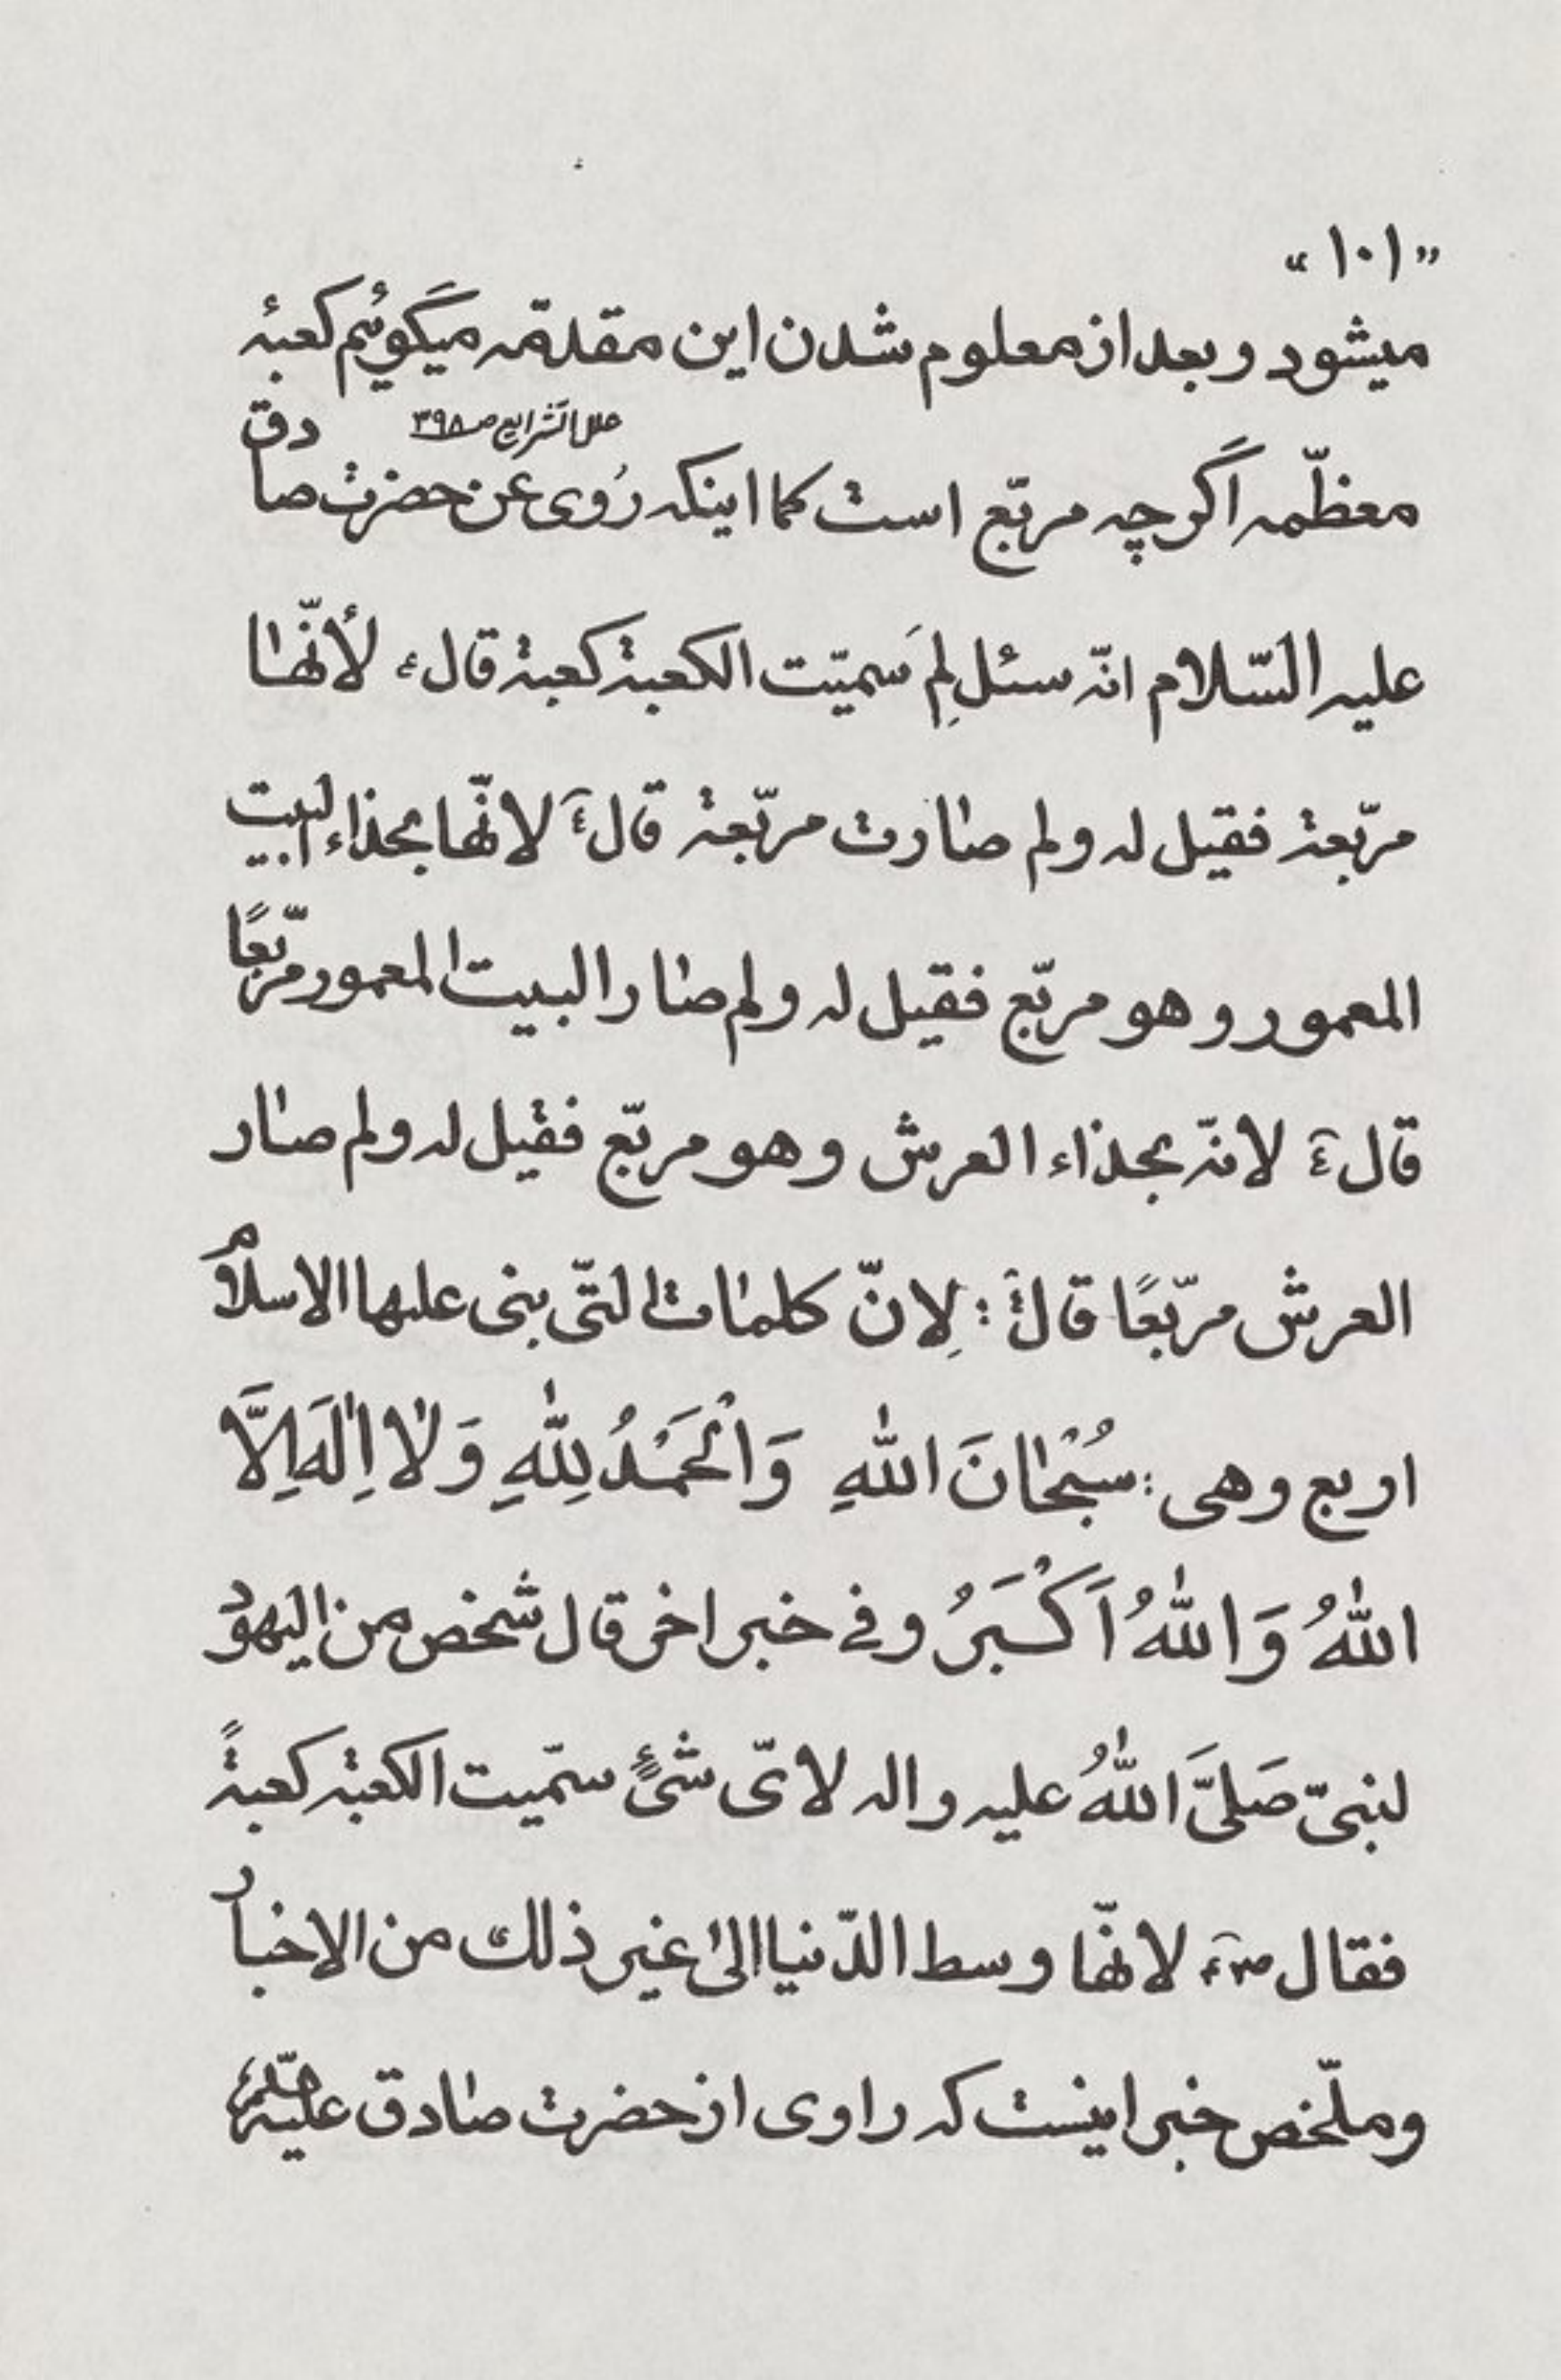 «۱۰۱»
میشود و بعد از معلوم شدن این مقدّمه میگوئیم کعبهٔ
علل الشرایع ص ۳۹۸
معظّمه اگرچه مربّع است کما اینکه رُوی عن حضرت صادق
علیه السّلام انّه سئل لِمَ سمیّت الکعبة کعبة قال ع لأنّها
مربّعة فقیل له ولم صارت مربّعة قال ع لانّها بحذاء البیت
المعمور و هو مربّع فقیل له ولم صار البیت المعمور مربّعًا
قال ع لانّه بحذاء العرش و هو مربّع فقیل له ولم صار
العرش مربّعًا قال ع : لِانّ کلمات التّی بنی علیها الاسلام
اربع وهی : سُبْحانَ اللهِ وَالْحَمْدُ لِلّهِ وَلا اِلهَ اِلَّا
اللهُ وَاللهُ اَکْبَرُ وفی خبر اخر قال شخص من الیهود
لنبیّ صَلَّی اللهُ علیه واله لایّ شیٍٔ سمّیت الکعبة کعبةً
فقال ص لانّها وسط الدّنیا الی غیر ذلك من الاخبار
و ملّخص خبر اینست که راوی از حضرت صادق علیه السّلام